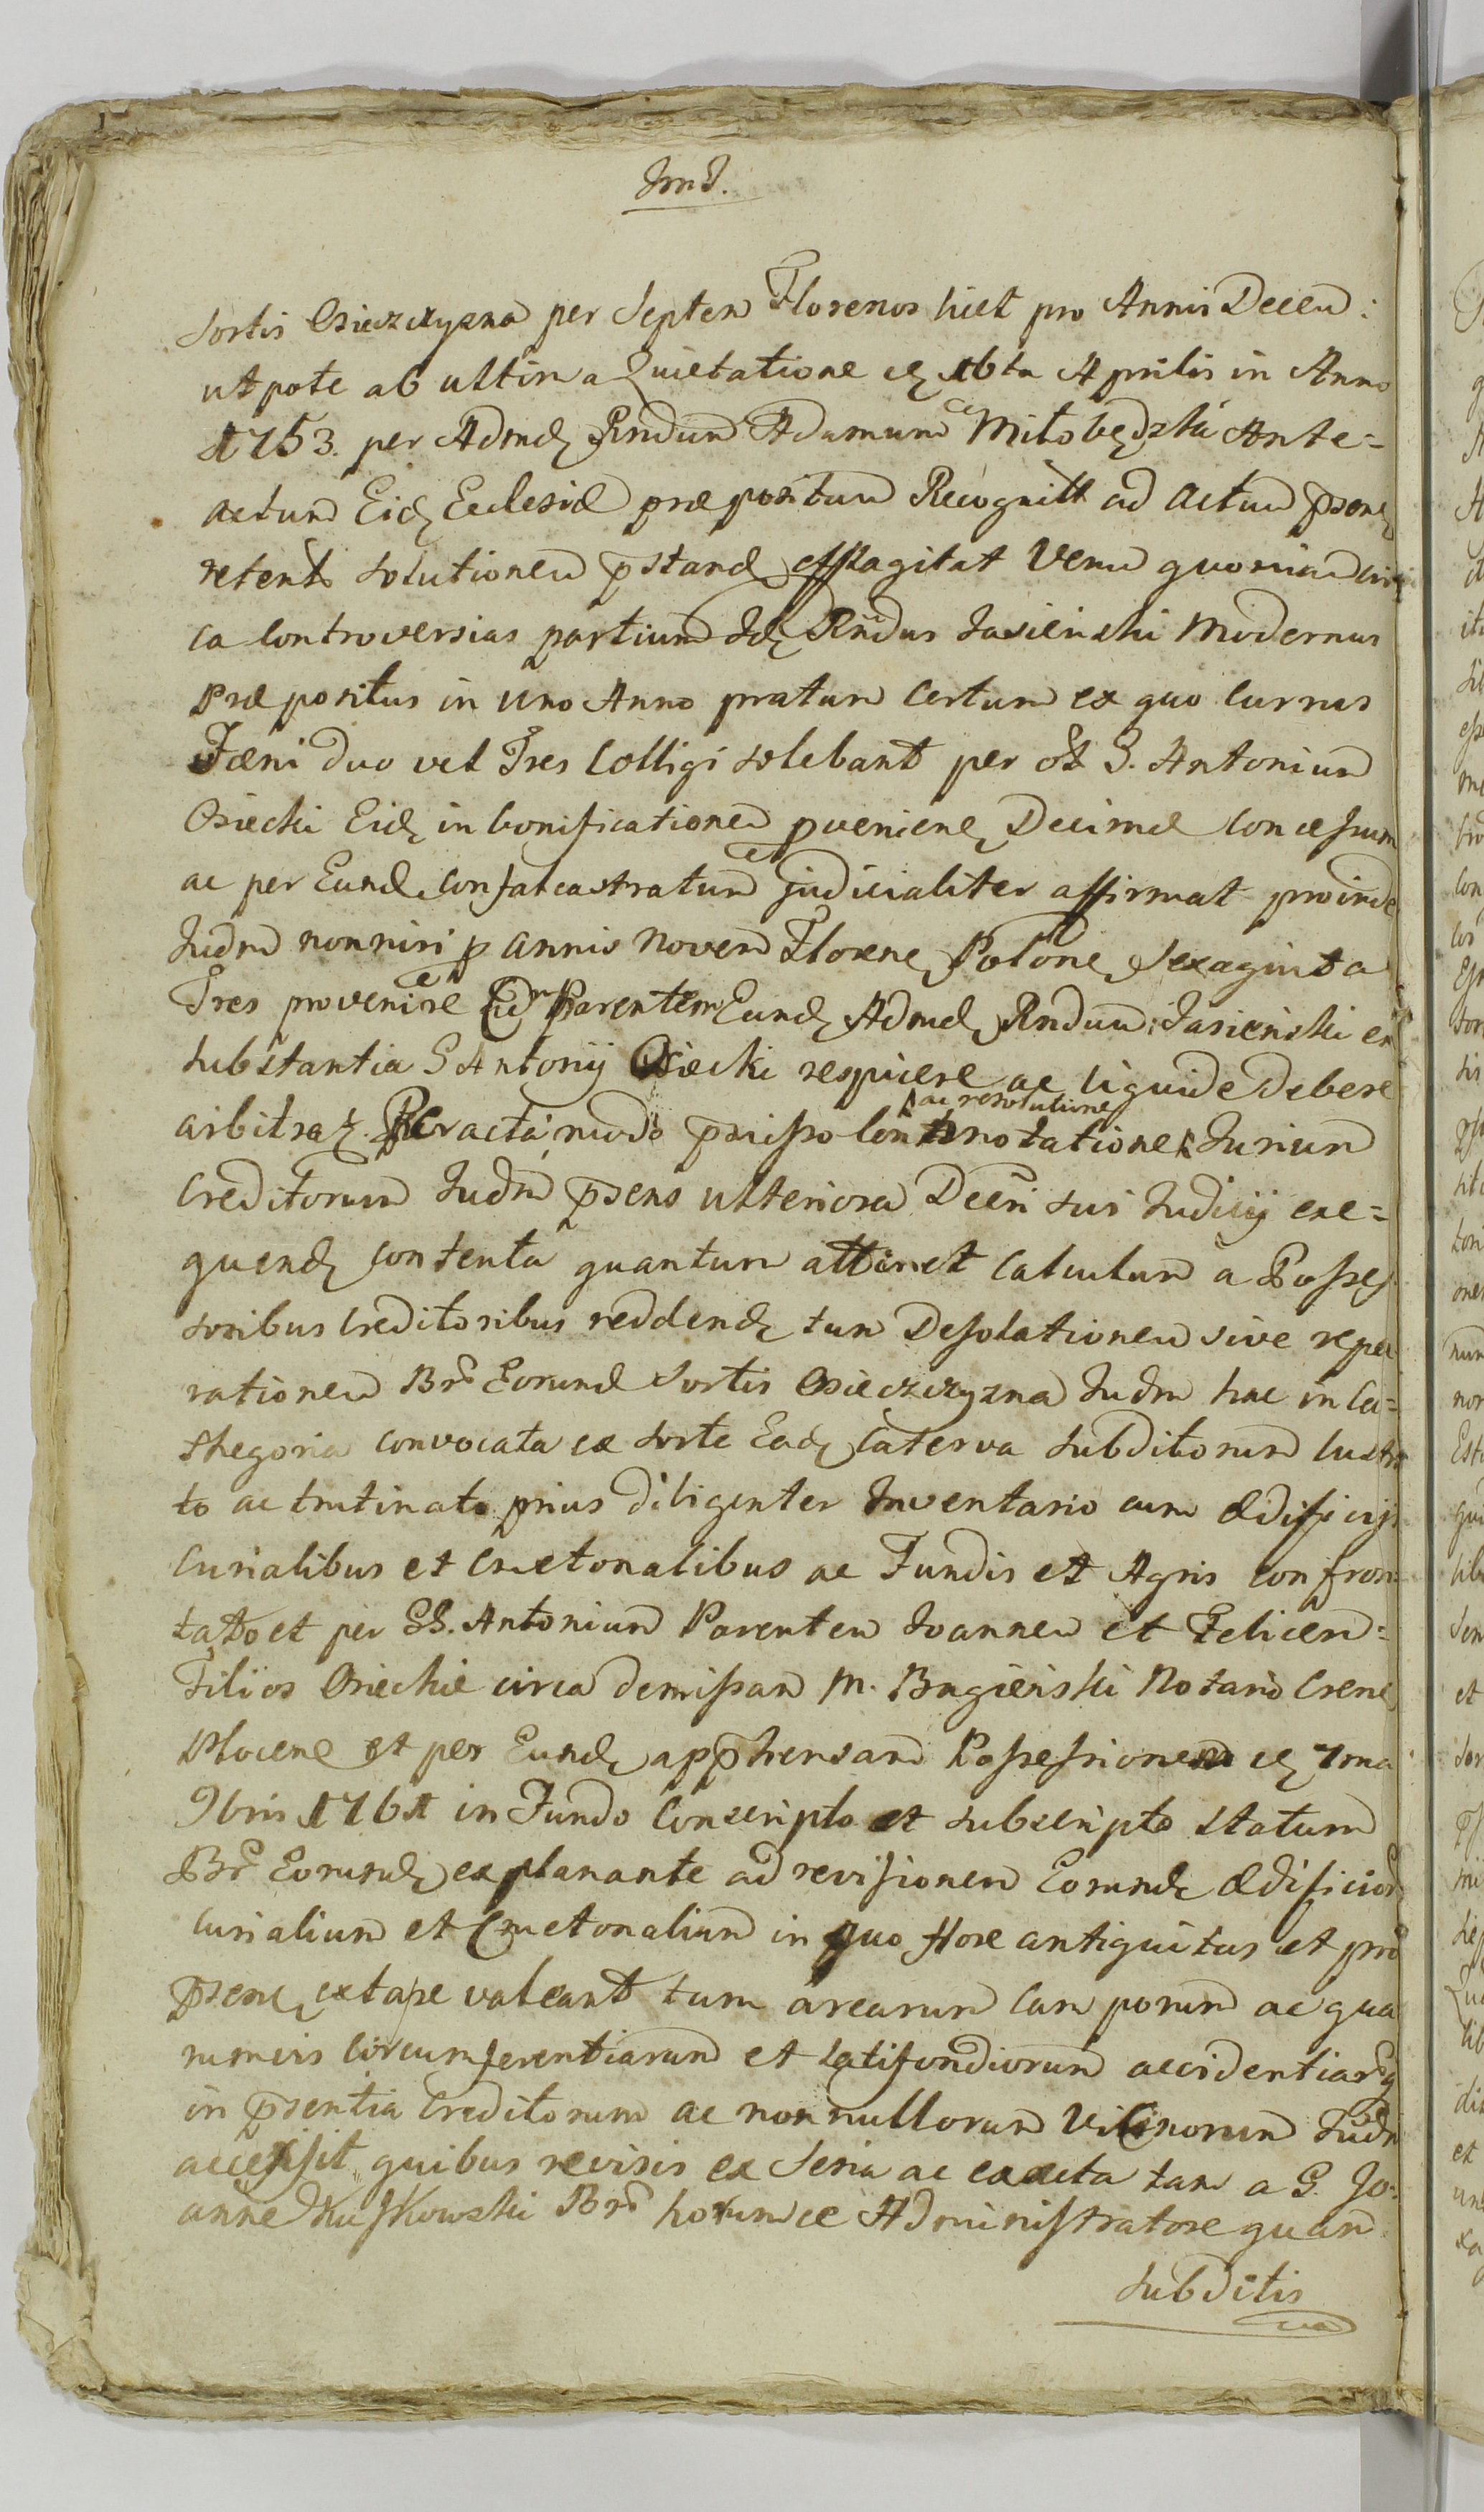 Ind.
Sortis Osieczczyzna per Septem Florenos licet pro Annis Decem:
utpote ab ultima Quietatione de 16ta Aprilis in Anno
1753. per Admd Rndum Adamum Miłobędzki Ante=
actum Eid Ecclesiæ præpositum Recognitt ad actum psens
retent solutionem pstand efflagitat Verum quoniam cir
ca Controversias partium Id Rndus Jasieński Modernus
Præpositus in uno Anno pratum Certum ex quo Currus
Fæni duo vel Tres Colligi solebant per G. Antonium
Osiecki Eid in bonificationem pvenien Decimæ Concessum
ac per Eund Confalcastratum judicialiter affirmat proinde
Judm nonnisi p annis Novem Floren Polon Sexaginta
Tres provenire Parentem Eund Admd Rndum Jasieński ex
substantia G Antonij Osiecki respicere ac liquide debere
arbitrat. Peracta modo pmisso Connotatione
ac resolutione Jurium
Creditorum Judm psens ulteriora Decri sui Judicij exe=
quend contenta quantum attinet Calculum a Posses
soribus Creditoribus reddend tum Desolationem sive repa
rationem Brum Eorund Sortis Osieczczyzna Judm hac in Ca=
thegoria convocata ex sorte Ead Caterva subditorum lustra
to ac trutinato prius diligenter Inventario cum Ædificijs
Curialibus et Cmetonalibus ac Fundis et Agris confron
tato et per GG. Antonium Parentem Joannem et Felicem=
Filios Osieckie circa demissam M. Bagieński Notario Cren
Plocen et per Eund apphensam Possessionem de 7ma
9bris 1761 in Fundo Conscripto et subscripto statum
Brum Eorund explanante ad revisionem Eorund Ædificiorum
Curialium et Cmetonalium in quo flore antiquitus et pro
psens extare valeant tum arearum Camporum ac qua
rumvis Circumferentiarum et Latifundiorum accidentiarq
in psentia Creditorum ac nonnullorum Vicinorum Judm
accessit, quibus revisis ex Seria ac exacta tam a G. Jo=
anne Kuskowski Brum horumce Administratore quam
subditis